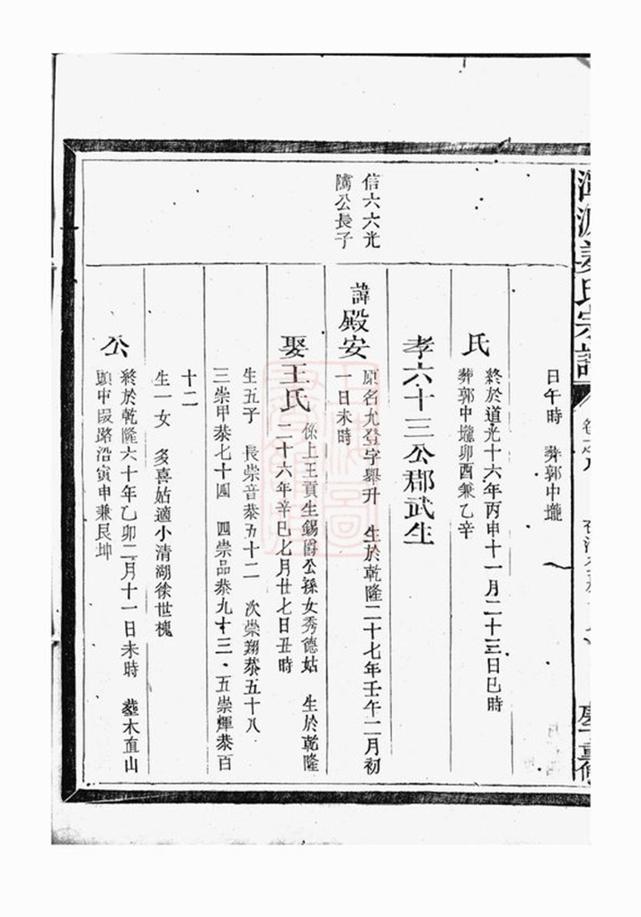 姜氏宗譜
日午時 葬郭中壠
氏
終於道光十六年丙申十一月二十三日巳時
葬郭中壠卯酉兼乙辛
孝六十三公郡武生
信六六光
公長子
諱殿安
原名允登字舉升 生於乾隆二十七年壬午二月初
一日未時
娶王氏
係上王貢生錫爵公孫女秀德姑 生於乾隆
二十六年辛巳七月廿七日丑時
生五子 長崇音恭五十二 次崇翔恭五十八
三崇甲恭七十四 四崇品恭九十三 五崇輝恭百
十二
生一女 多喜姑適小清湖徐世槐
公
終於乾隆六十年乙卯二月十一日未時 葬木直山
頭中段路沿寅申兼艮坤